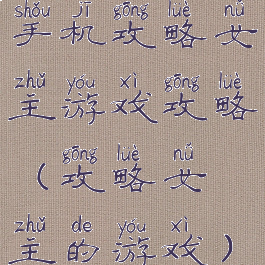 shǒu jī gōng lüè nǚ
手机攻略女
zhǔ yóu xì gōng lüè
主游戏攻略
gōng lüè nǚ
（攻略女
zhǔ de yóu xì
主的游戏）